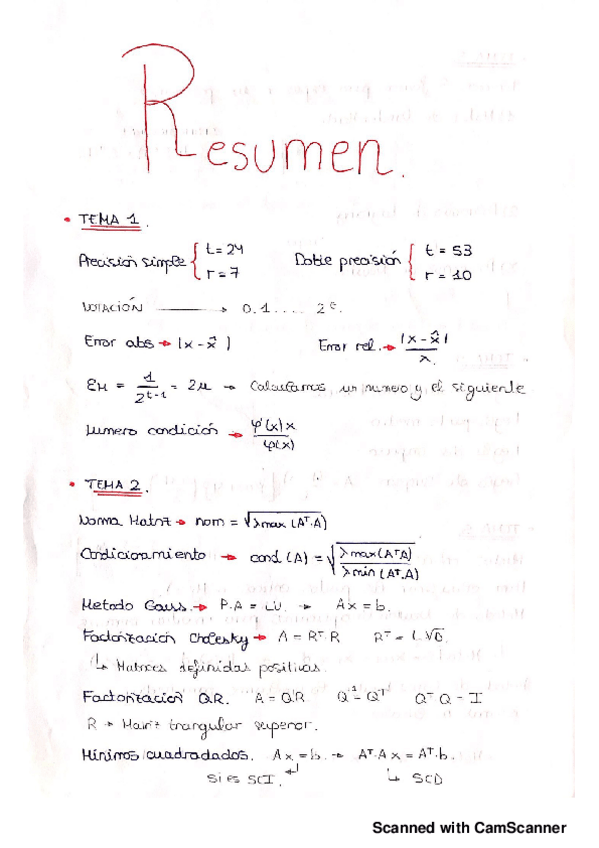 Resumen.
• TEMA 1.
Precisión simple { t = 24 r = 7 Doble precisión { t = 53 r = 10
NOTACIÓN → 0.1.... 2ᵉ.
Error abs → |x - x̂| Error rel. → |x - x̂| / x.
εM = 1 / 2^(t-1) = 2μ → Calculamos un numero y el siguiente
Numero condición → φ'(x) x / φ(x)
• TEMA 2.
Norma Matriz → nom = √(λmax (Aᵀ·A))
Condicionamiento → cond (A) = √(λmax (AᵀA) / λmin (Aᵀ·A))
Metodo Gauss. → P.A = LU. → Ax = b.
Factorización Cholesky → A = Rᵀ·R Rᵀ = L√D.
↳ Matrices definidas positivas.
Factorización QR. A = QR Q⁻¹ = Qᵀ Qᵀ Q = I
R → Matriz triangular superior.
Mínimos cuadradados. Ax = b. → Aᵀ·Ax = Aᵀ·b.
Si es SCI. ↵ ↳ SCD
Scanned with CamScanner